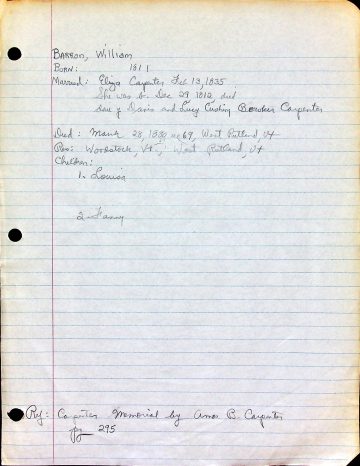 BARRON, William
BORN: 1811
Married: Eliza Carpenter Feb 13, 1835
She was b. Dec 29, 1812, dau
of Davis and Lucy Cushing Carpenter
Died: March 28, 1880 ae 69, West Rutland, Vt
Res: Woodstock, Vt, West Rutland, Vt
Children:
1. Louisa
2. Fanny
Ref: Carpenter Memorial by Amos B. Carpenter
pg 295